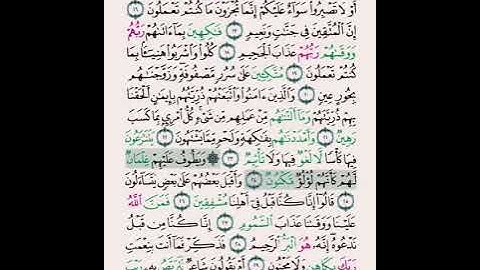 أَوْ لَا تَصْبِرُوا سَوَاءٌ عَلَيْكُمْ إِنَّمَا تُجْزَوْنَ مَا كُنتُمْ تَعْمَلُونَ ١٦
إِنَّ الْمُتَّقِينَ فِي جَنَّاتٍ وَنَعِيمٍ ١٧ فَاكِهِينَ بِمَا آتَاهُمْ رَبُّهُمْ
وَوَقَاهُمْ رَبُّهُمْ عَذَابَ الْجَحِيمِ ١٨ كُلُوا وَاشْرَبُوا هَنِيئًا بِمَا
كُنتُمْ تَعْمَلُونَ ١٩ مُتَّكِئِينَ عَلَىٰ سُرُرٍ مَّصْفُوفَةٍ وَزَوَّجْنَاهُم
بِحُورٍ عِينٍ ٢٠ وَالَّذِينَ آمَنُوا وَاتَّبَعَتْهُمْ ذُرِّيَّتُهُم بِإِيمَانٍ أَلْحَقْنَا
بِهِمْ ذُرِّيَّتَهُمْ وَمَا أَلَتْنَاهُم مِّنْ عَمَلِهِم مِّن شَيْءٍ كُلُّ امْرِئٍ بِمَا كَسَبَ
رَهِينٌ ٢١ وَأَمْدَدْنَاهُم بِفَاكِهَةٍ وَلَحْمٍ مِّمَّا يَشْتَهُونَ ٢٢ يَتَنَازَعُونَ
فِيهَا كَأْسًا لَّا لَغْوٌ فِيهَا وَلَا تَأْثِيمٌ ٢٣ ۞ وَيَطُوفُ عَلَيْهِمْ غِلْمَانٌ
لَّهُمْ كَأَنَّهُمْ لُؤْلُؤٌ مَّكْنُونٌ ٢٤ وَأَقْبَلَ بَعْضُهُمْ عَلَىٰ بَعْضٍ يَتَسَاءَلُونَ
٢٥ قَالُوا إِنَّا كُنَّا قَبْلُ فِي أَهْلِنَا مُشْفِقِينَ ٢٦ فَمَنَّ اللَّهُ
عَلَيْنَا وَوَقَانَا عَذَابَ السَّمُومِ ٢٧ إِنَّا كُنَّا مِن قَبْلُ
نَدْعُوهُ إِنَّهُ هُوَ الْبَرُّ الرَّحِيمُ ٢٨ فَذَكِّرْ فَمَا أَنتَ بِنِعْمَتِ
رَبِّكَ بِكَاهِنٍ وَلَا مَجْنُونٍ ٢٩ أَمْ يَقُولُونَ شَاعِرٌ نَّتَرَبَّصُ بِهِ رَيْبَ